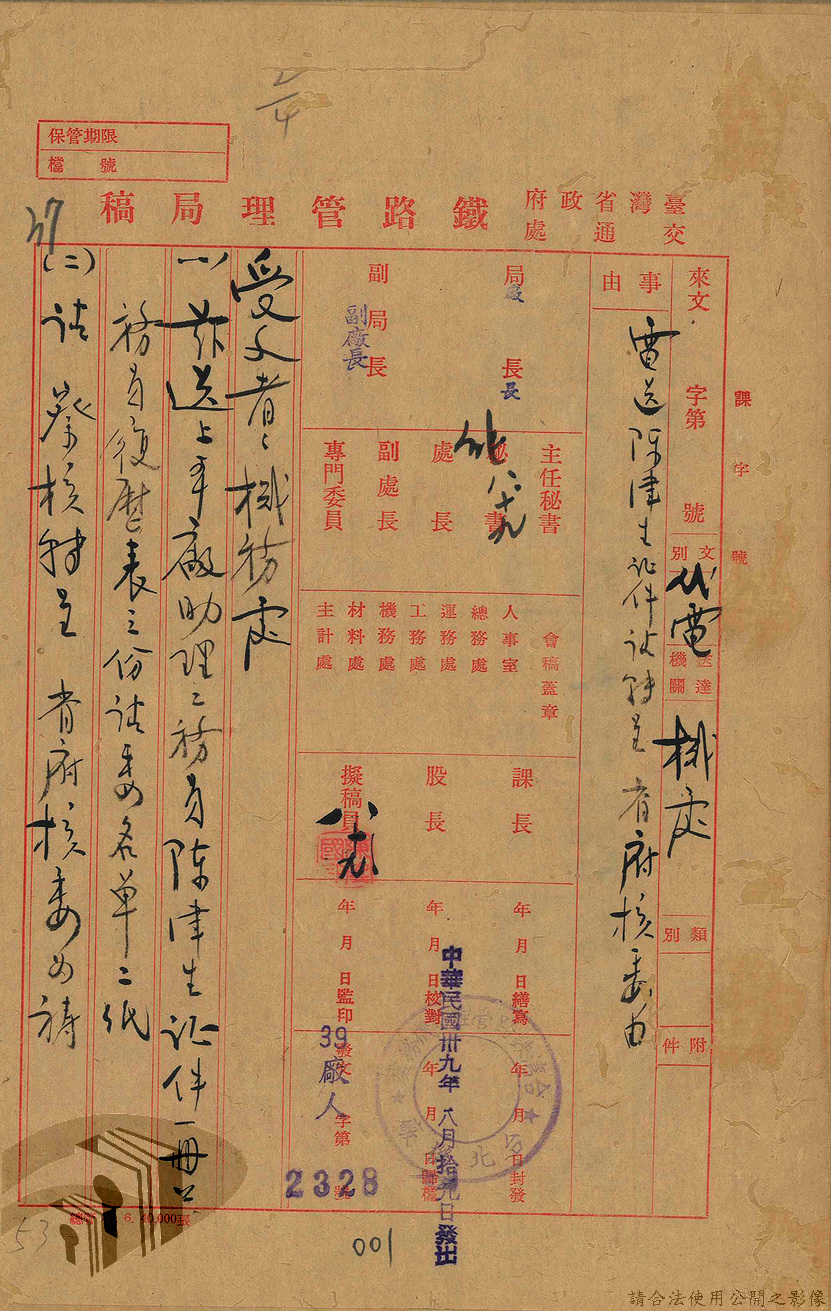 保管期限
檔 號
臺灣省政府
交通處
鐵路管理局稿
來文 字第 號
課 字 號
文別
代電
送達機關
機處
類別
附件
事由
電送陳津生證件請轉呈省府核委由
局長
廠長
副局長
副廠長
主任秘書
秘書
處長
副處長
專門委員
八、十九
會稿蓋章
人事室
總務處
運務處
工務處
機務處
材料處
主計處
課長
股長
擬稿員
八、十九
年 月 日繕寫
年 月 日校對
年 月 日監印
年 月 日封發
年 月 日歸檔
發文 字第 號
中華民國卅九年八月拾九日發出
39廠人
2328
受文者:機務處
(一)茲送上本廠助理工務員陳津生証件一冊公
務員履歷表三份請委名單二紙
(二)請 察核轉呈 省府核委為禱
37
53
6. 40,000張
001
請合法使用公開之影像